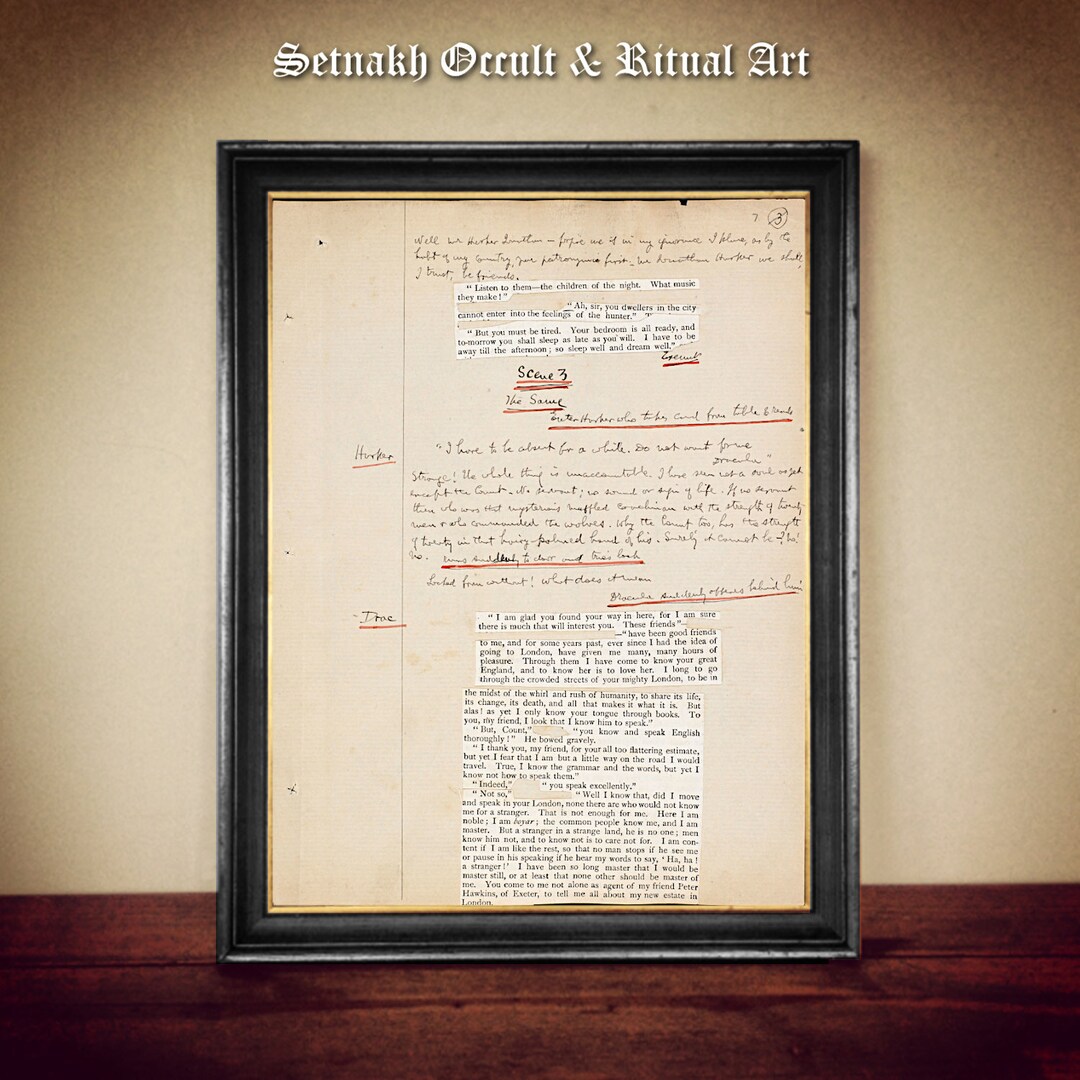 Setnakh Occult & Ritual Art
7 3
Well Mr Harker Jonathan — forgive me if in my ignorance I place, as by the
habit of my country, your patronymic first — Mr Jonathan Harker we shall
I trust, be friends.
“ Listen to them—the children of the night. What music
they make ! ”
“ Ah, sir, you dwellers in the city
cannot enter into the feelings of the hunter.”
“ But you must be tired. Your bedroom is all ready, and
to-morrow you shall sleep as late as you will. I have to be
away till the afternoon ; so sleep well and dream well.”
Exeunt
Scene 3
The Same
Enter Harker who takes card from table & reads
Harker
“I have to be absent for a while. Do not wait for me
Dracula”
Strange! The whole thing is unaccountable. I have seen not a soul as yet
except the Count. No servant; no sound or sign of life. If no servant
then who was that mysterious muffled coachman with the strength of twenty
men & who commanded the wolves. Why the Count too, has the strength
of twenty in that hand of his. Surely it cannot be? No!
No. runs suddenly to door and tries lock
Locked from without! What does it mean
Dracula suddenly appears behind him
Drac
“ I am glad you found your way in here, for I am sure
there is much that will interest you. These friends ”—
—“ have been good friends
to me, and for some years past, ever since I had the idea of
going to London, have given me many, many hours of
pleasure. Through them I have come to know your great
England, and to know her is to love her. I long to go
through the crowded streets of your mighty London, to be in
the midst of the whirl and rush of humanity, to share its life,
its change, its death, and all that makes it what it is. But
alas ! as yet I only know your tongue through books. To
you, my friend, I look that I know him to speak.”
“ But, Count,” “ you know and speak English
thoroughly ! ” He bowed gravely.
“ I thank you, my friend, for your all too flattering estimate,
but yet I fear that I am but a little way on the road I would
travel. True, I know the grammar and the words, but yet I
know not how to speak them.”
“ Indeed,” “ you speak excellently.”
“ Not so,” “ Well I know that, did I move
and speak in your London, none there are who would not know
me for a stranger. That is not enough for me. Here I am
noble ; I am boyar ; the common people know me, and I am
master. But a stranger in a strange land, he is no one ; men
know him not, and to know not is to care not for. I am con-
tent if I am like the rest, so that no man stops if he see me
or pause in his speaking if he hear my words to say, ‘ Ha, ha !
a stranger ! ’ I have been so long master that I would be
master still, or at least that none other should be master of
me. You come to me not alone as agent of my friend Peter
Hawkins, of Exeter, to tell me all about my new estate in
London.